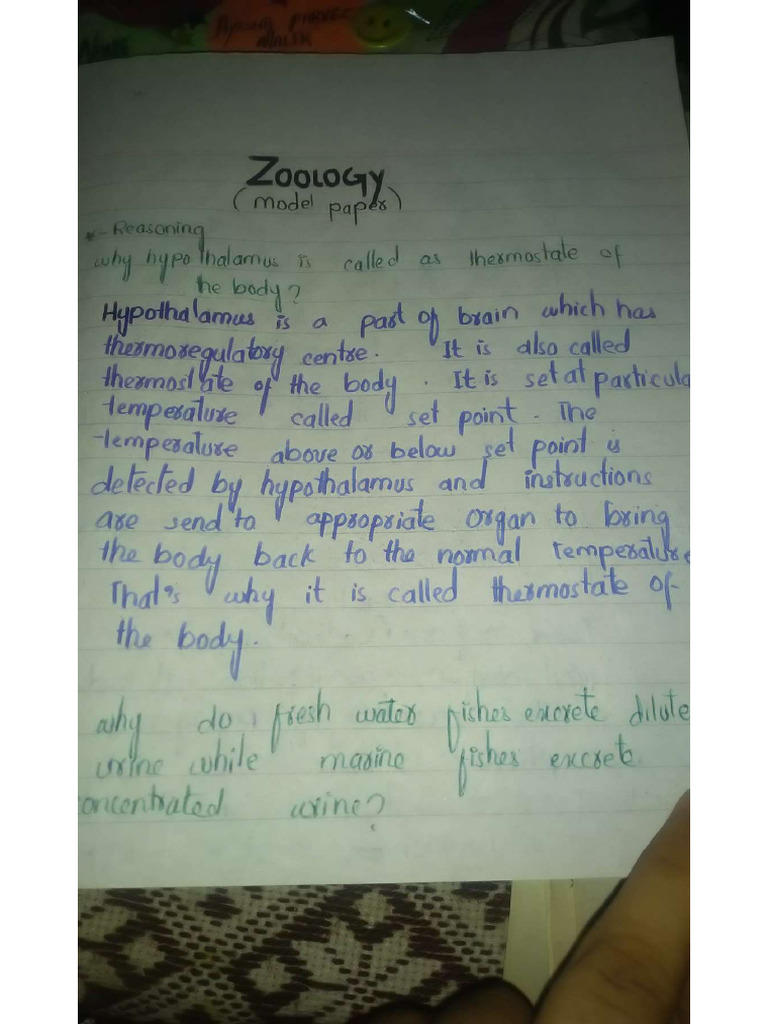 Zoology
(model paper)
*- Reasoning
why hypothalamus is called as thermostate of
the body?
Hypothalamus is a part of brain which has
thermoregulatory centre. It is also called
thermostate of the body. It is set at particula
temperature called set point. The
temperature above or below set point is
detected by hypothalamus and instructions
are send to appropriate organ to bring
the body back to the normal temperature
That's why it is called thermostate of
the body.
why do fresh water fishes excrete dilute
urine while marine fishes excrete
oncentrated urine?